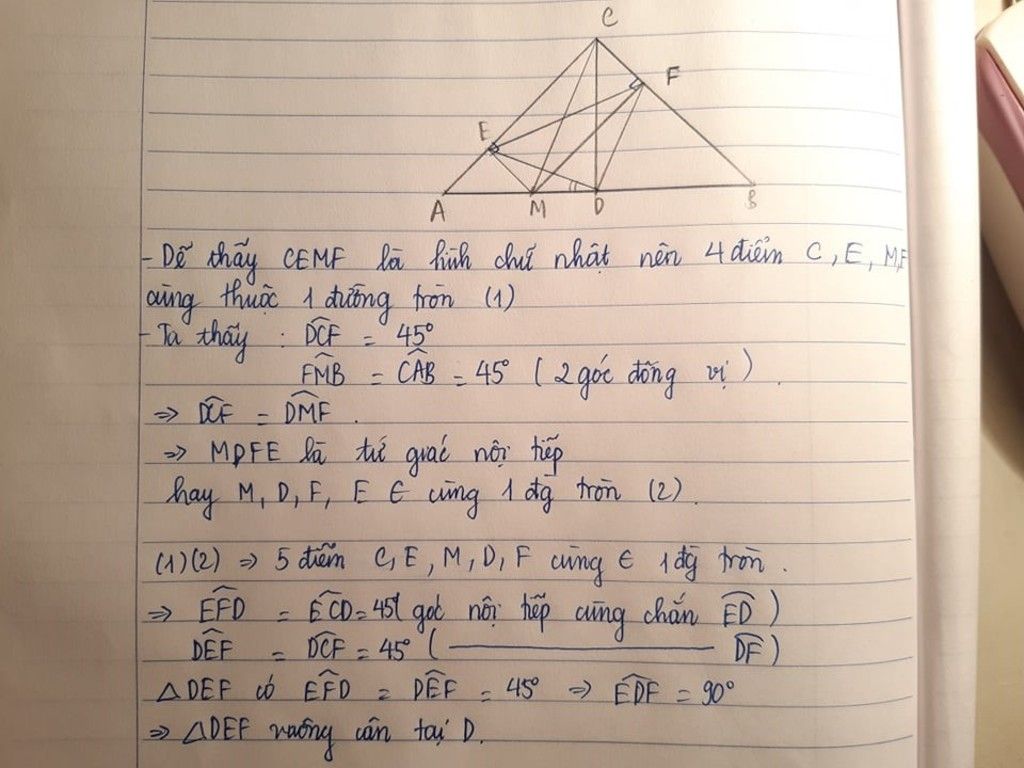 C
F
E
A M D B
- Dễ thấy CEMF là hình chữ nhật nên 4 điểm C, E, M, F
cùng thuộc 1 đường tròn (1)
- Ta thấy : \widehat{DCF} = 45°
\widehat{FMB} = \widehat{CAB} = 45° ( 2 góc đồng vị ) .
=> \widehat{DCF} = \widehat{DMF} .
=> MDFE là tứ giác nội tiếp
hay M, D, F, E ∈ cùng 1 đg tròn (2) .
(1)(2) => 5 điểm C, E, M, D, F cùng ∈ 1 đg tròn .
=> \widehat{EFD} = \widehat{ECD} = 45° ( góc nội tiếp cùng chắn \widehat{ED} )
\widehat{DEF} = \widehat{DCF} = 45° ( ——————— \widehat{DF} )
△DEF có \widehat{EFD} = \widehat{DEF} = 45° => \widehat{EDF} = 90°
=> △DEF vuông cân tại D.